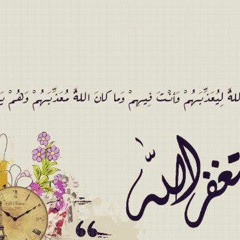 لله لِيُعَذِّبَهُمْ وَأَنْتَ فِيهِمْ وَمَا كَانَ اللهُ مُعَذِّبَهُمْ وَهُمْ يَ
تغفر الله